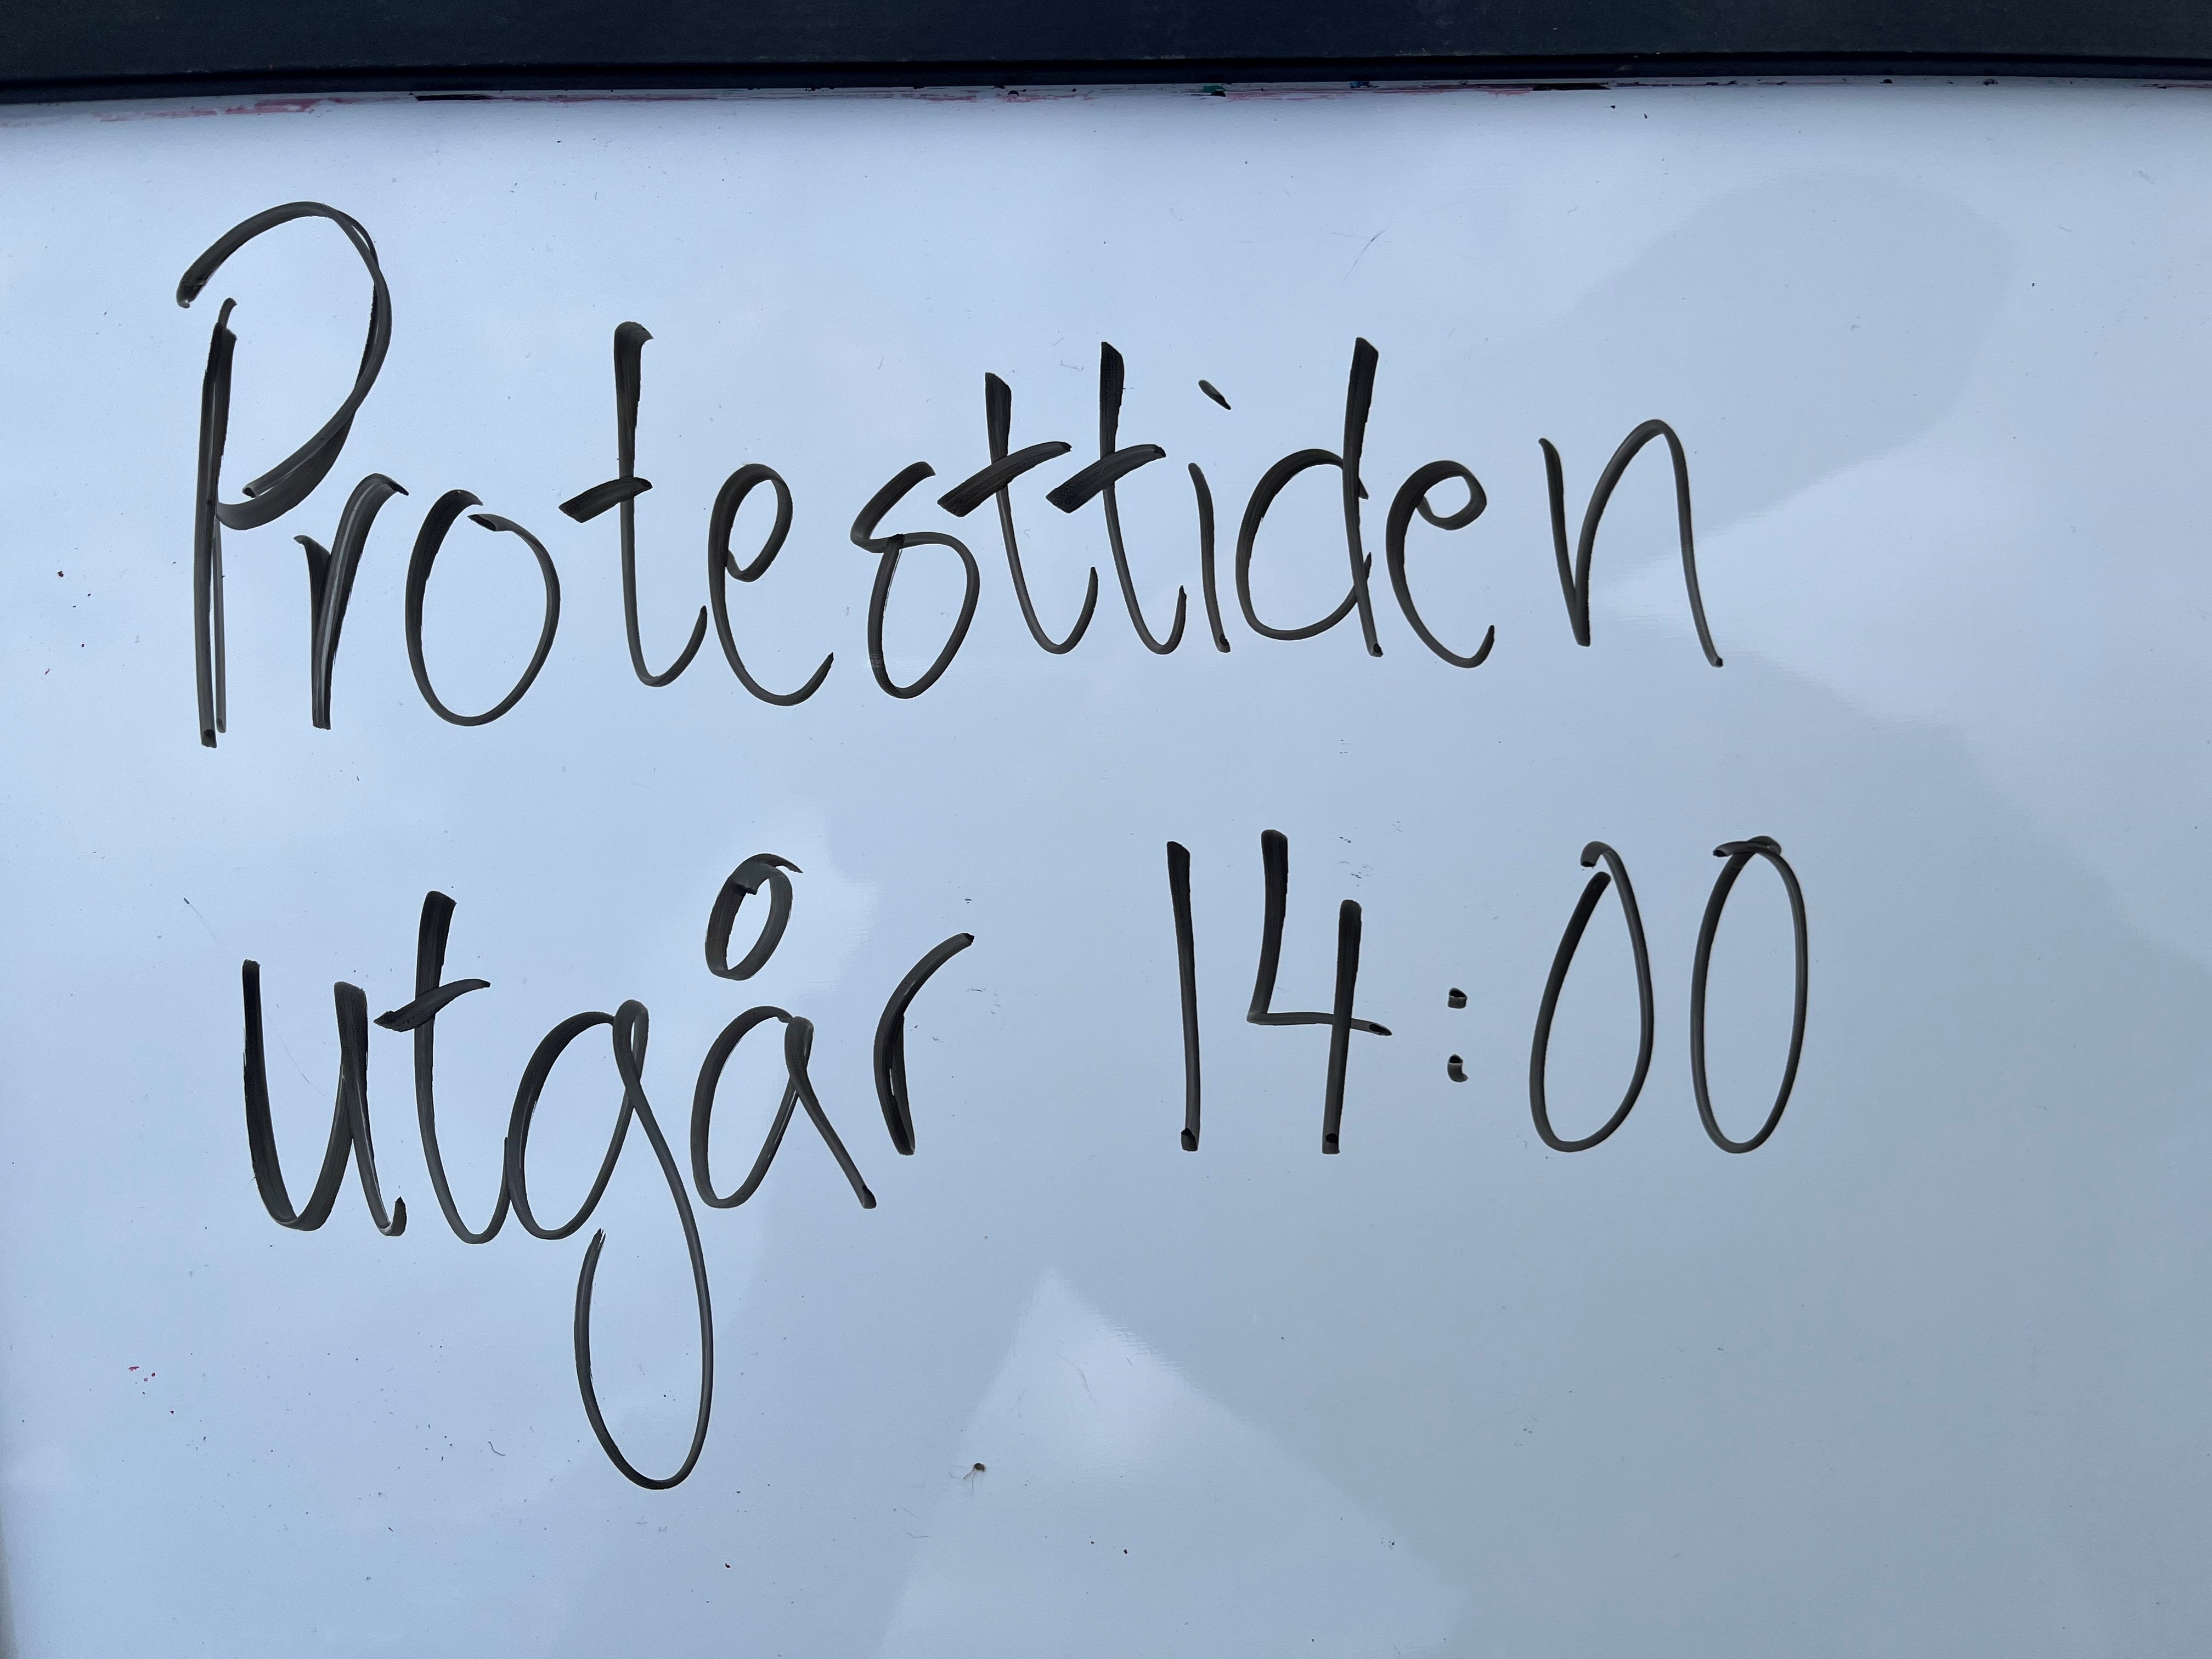 Protesttiden
utgår 14:00